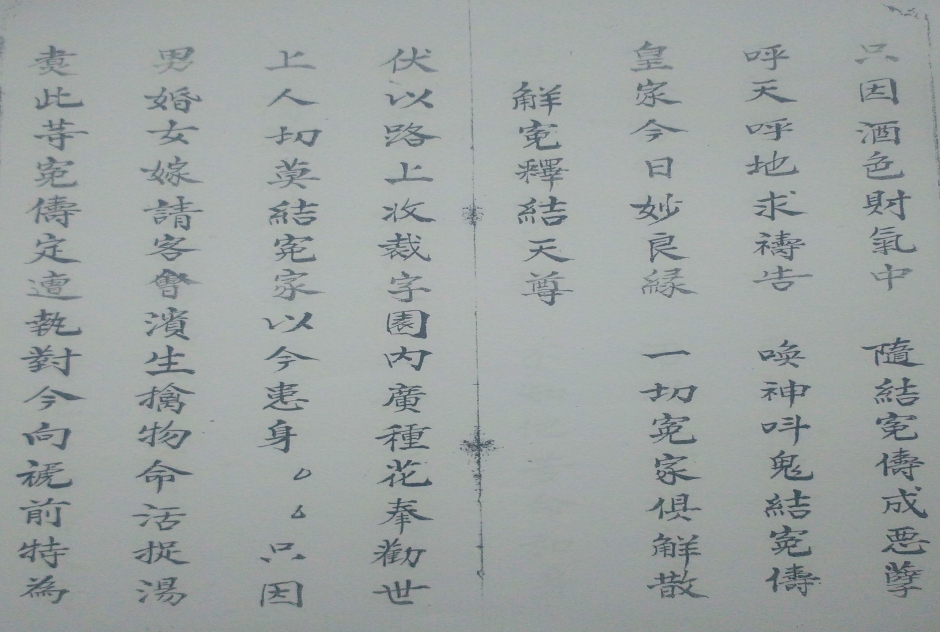 只因酒色財氣中 隨結寃儔成惡孽
呼天呼地求禱告 喚神呌鬼結寃儔
皇家今日妙良緣 一切寃家俱觧散
觧寃釋結天尊
伏以路上收裁字園内廣種花奉勸世
上人切莫結寃家以今患身〇〇只因
男婚女嫁請客會濱生擒物命活捉湯
煑此等寃儔定遭執對今向祇前特為